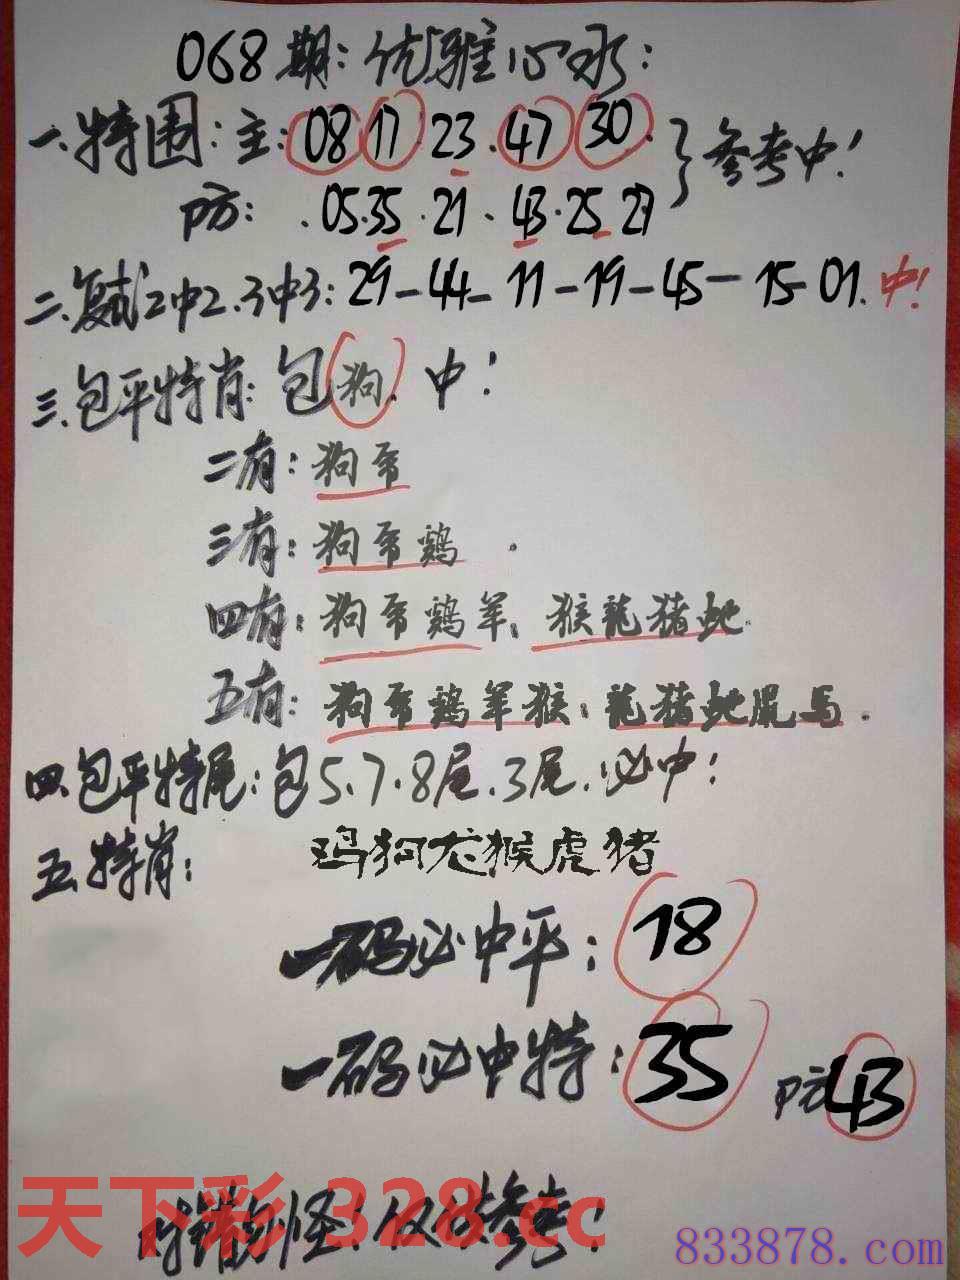 068期:优雅心水:
一.特围:主:08 17 23.47 30.}参考中!
防:.05.35.21.43.25 27
二.复式2中2.3中3:29-44-11-19-45-15-01.中!
三.包平特肖:包狗.中!
二有:狗常
三有:狗常鸡.
四有:狗常鸡羊.猴龍猪蛇.
五有:狗常鸡羊猴:龍猪蛇鼠马.
四.包平特尾:包5.7.8尾.3尾.必中!
五.特肖:鸡狗龙猴虎猪
一码必中平:18
一码必中特:35 防43
对错勿怪!仅供参考!
天下彩 328.cc
833878.com